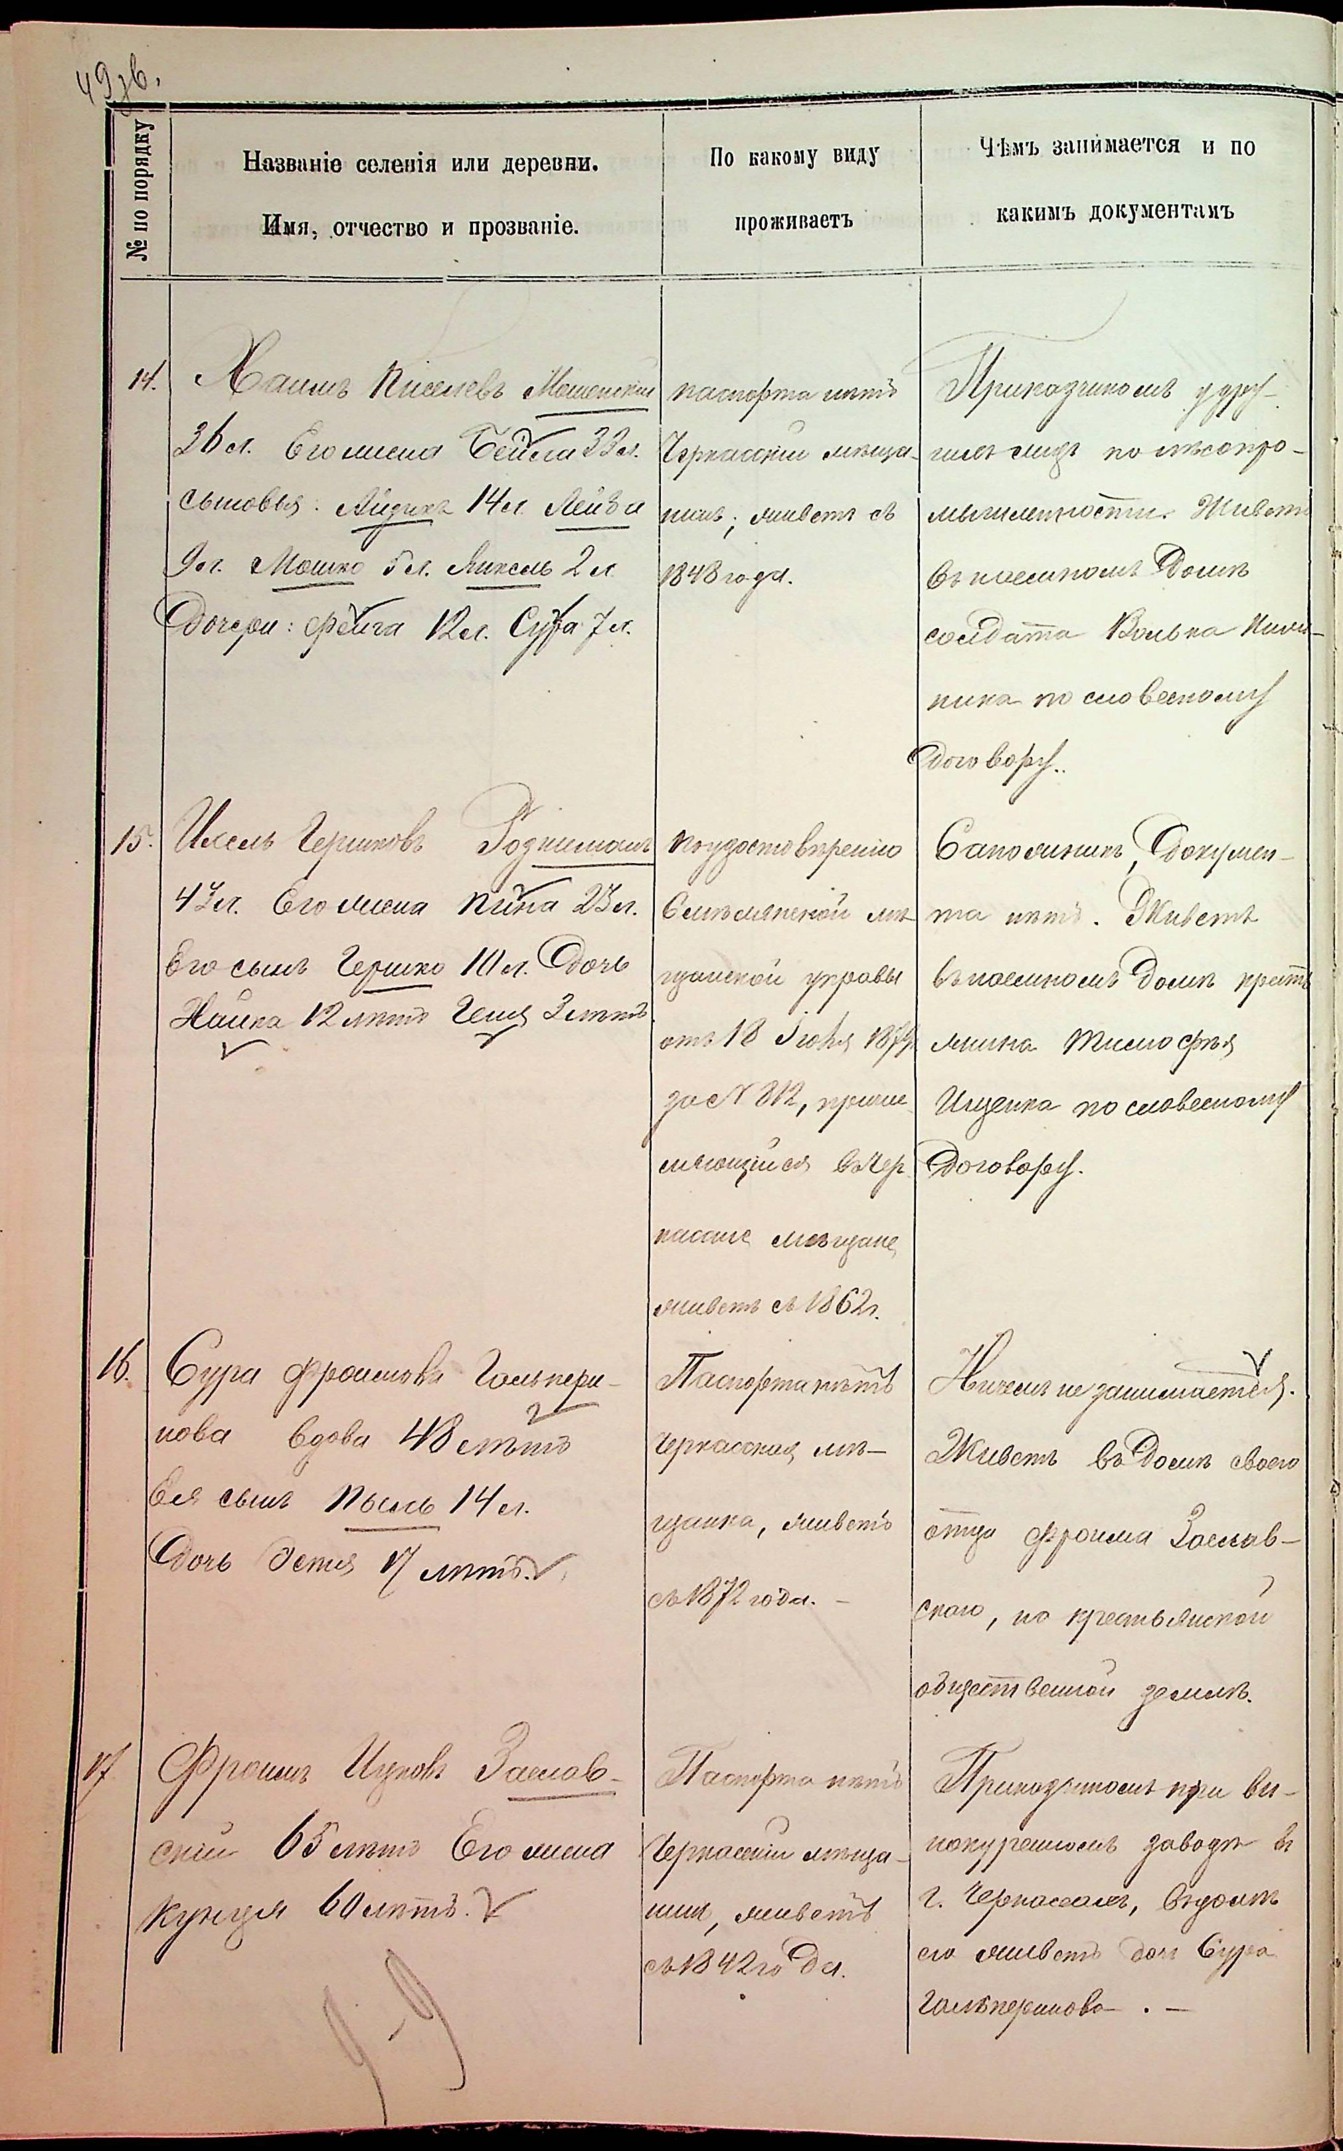 49зв.
№ по порядку
Названіе селенія или деревни.
Имя, отчество и прозваніе.
По какому виду
проживаетъ
Чѣмъ занимается и по
какимъ документамъ
14.
Хаимъ Киселевъ Мошенскій
36 л. Его жена Бейла 33 л.
сыновья: Айзикъ 14 л. Лейба
9 л. Мошко 5 л. Янкель 2 л
Дочери: Фейга 12 л. Сура 7 л.
паспорта нѣтъ
Черкасскій мѣща-
нинъ; живетъ съ
1848 года.
Приказчикомъ у дру-
гихъ лицъ по лѣсопро-
мышленности. Живетъ
въ наемномъ домѣ
солдата Волька
по словесному
договору.
15.
Гершковъ
43 л. Его жена 23 л.
Его сынъ Гершко 10 л. Дочь
Хайка 12 лѣтъ 3 лѣтъ
по удостовѣренію
Смѣлянской мѣ-
щанской управы
отъ 18 Іюля 1879
за № 812, причис
ляющійся въ Чер
касскіе мѣщане,
живетъ съ 1862 г.
Сапожникъ, докумен-
та нѣтъ. Живетъ
въ наемномъ домѣ крестья
янина Тимофѣя
Ищенка по словесному
договору.
16.
Сура Фроимова Гальпери-
нова вдова 48 лѣтъ
Ея сынъ 14 л.
Дочь Эстя 17 лѣтъ.
Паспорта нѣтъ
Черкасская мѣ-
щанка, живетъ
съ 1872 года. -
Ничемъ не занимается.
Живетъ въ домѣ своего
отца Фроима Заслав-
скаго, на крестьянской
общественной землѣ.
17
Фроимъ Ицковъ Заслав-
скій 65 лѣтъ Его жена
Кунця 60 лѣтъ.
Паспорта нѣтъ
Черкасскій мѣща-
нинъ, живетъ
съ 1842 года.
Приказчикомъ при ви-
нокуренномъ заводѣ въ
г. Черкассахъ, въ домѣ
его живетъ дочь Сура
Гальперинова. -
9-9